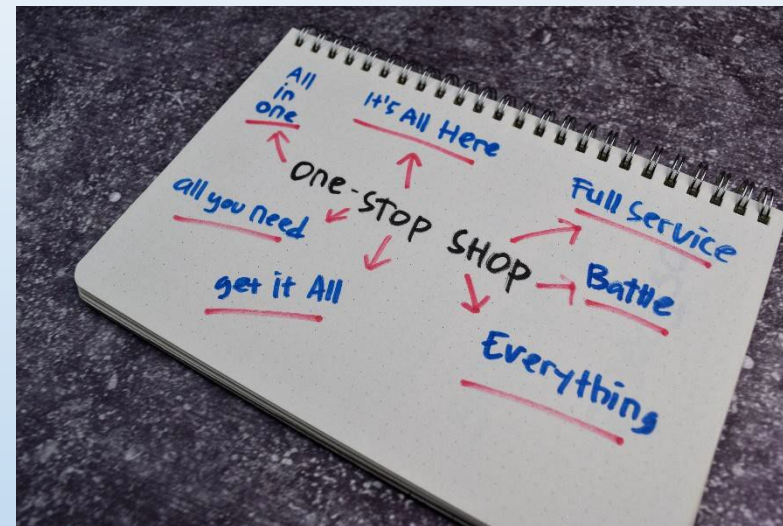 All
in
one
It's All Here
One-STOP SHOP
all you need
get it All
Full Service
Battle
Everything